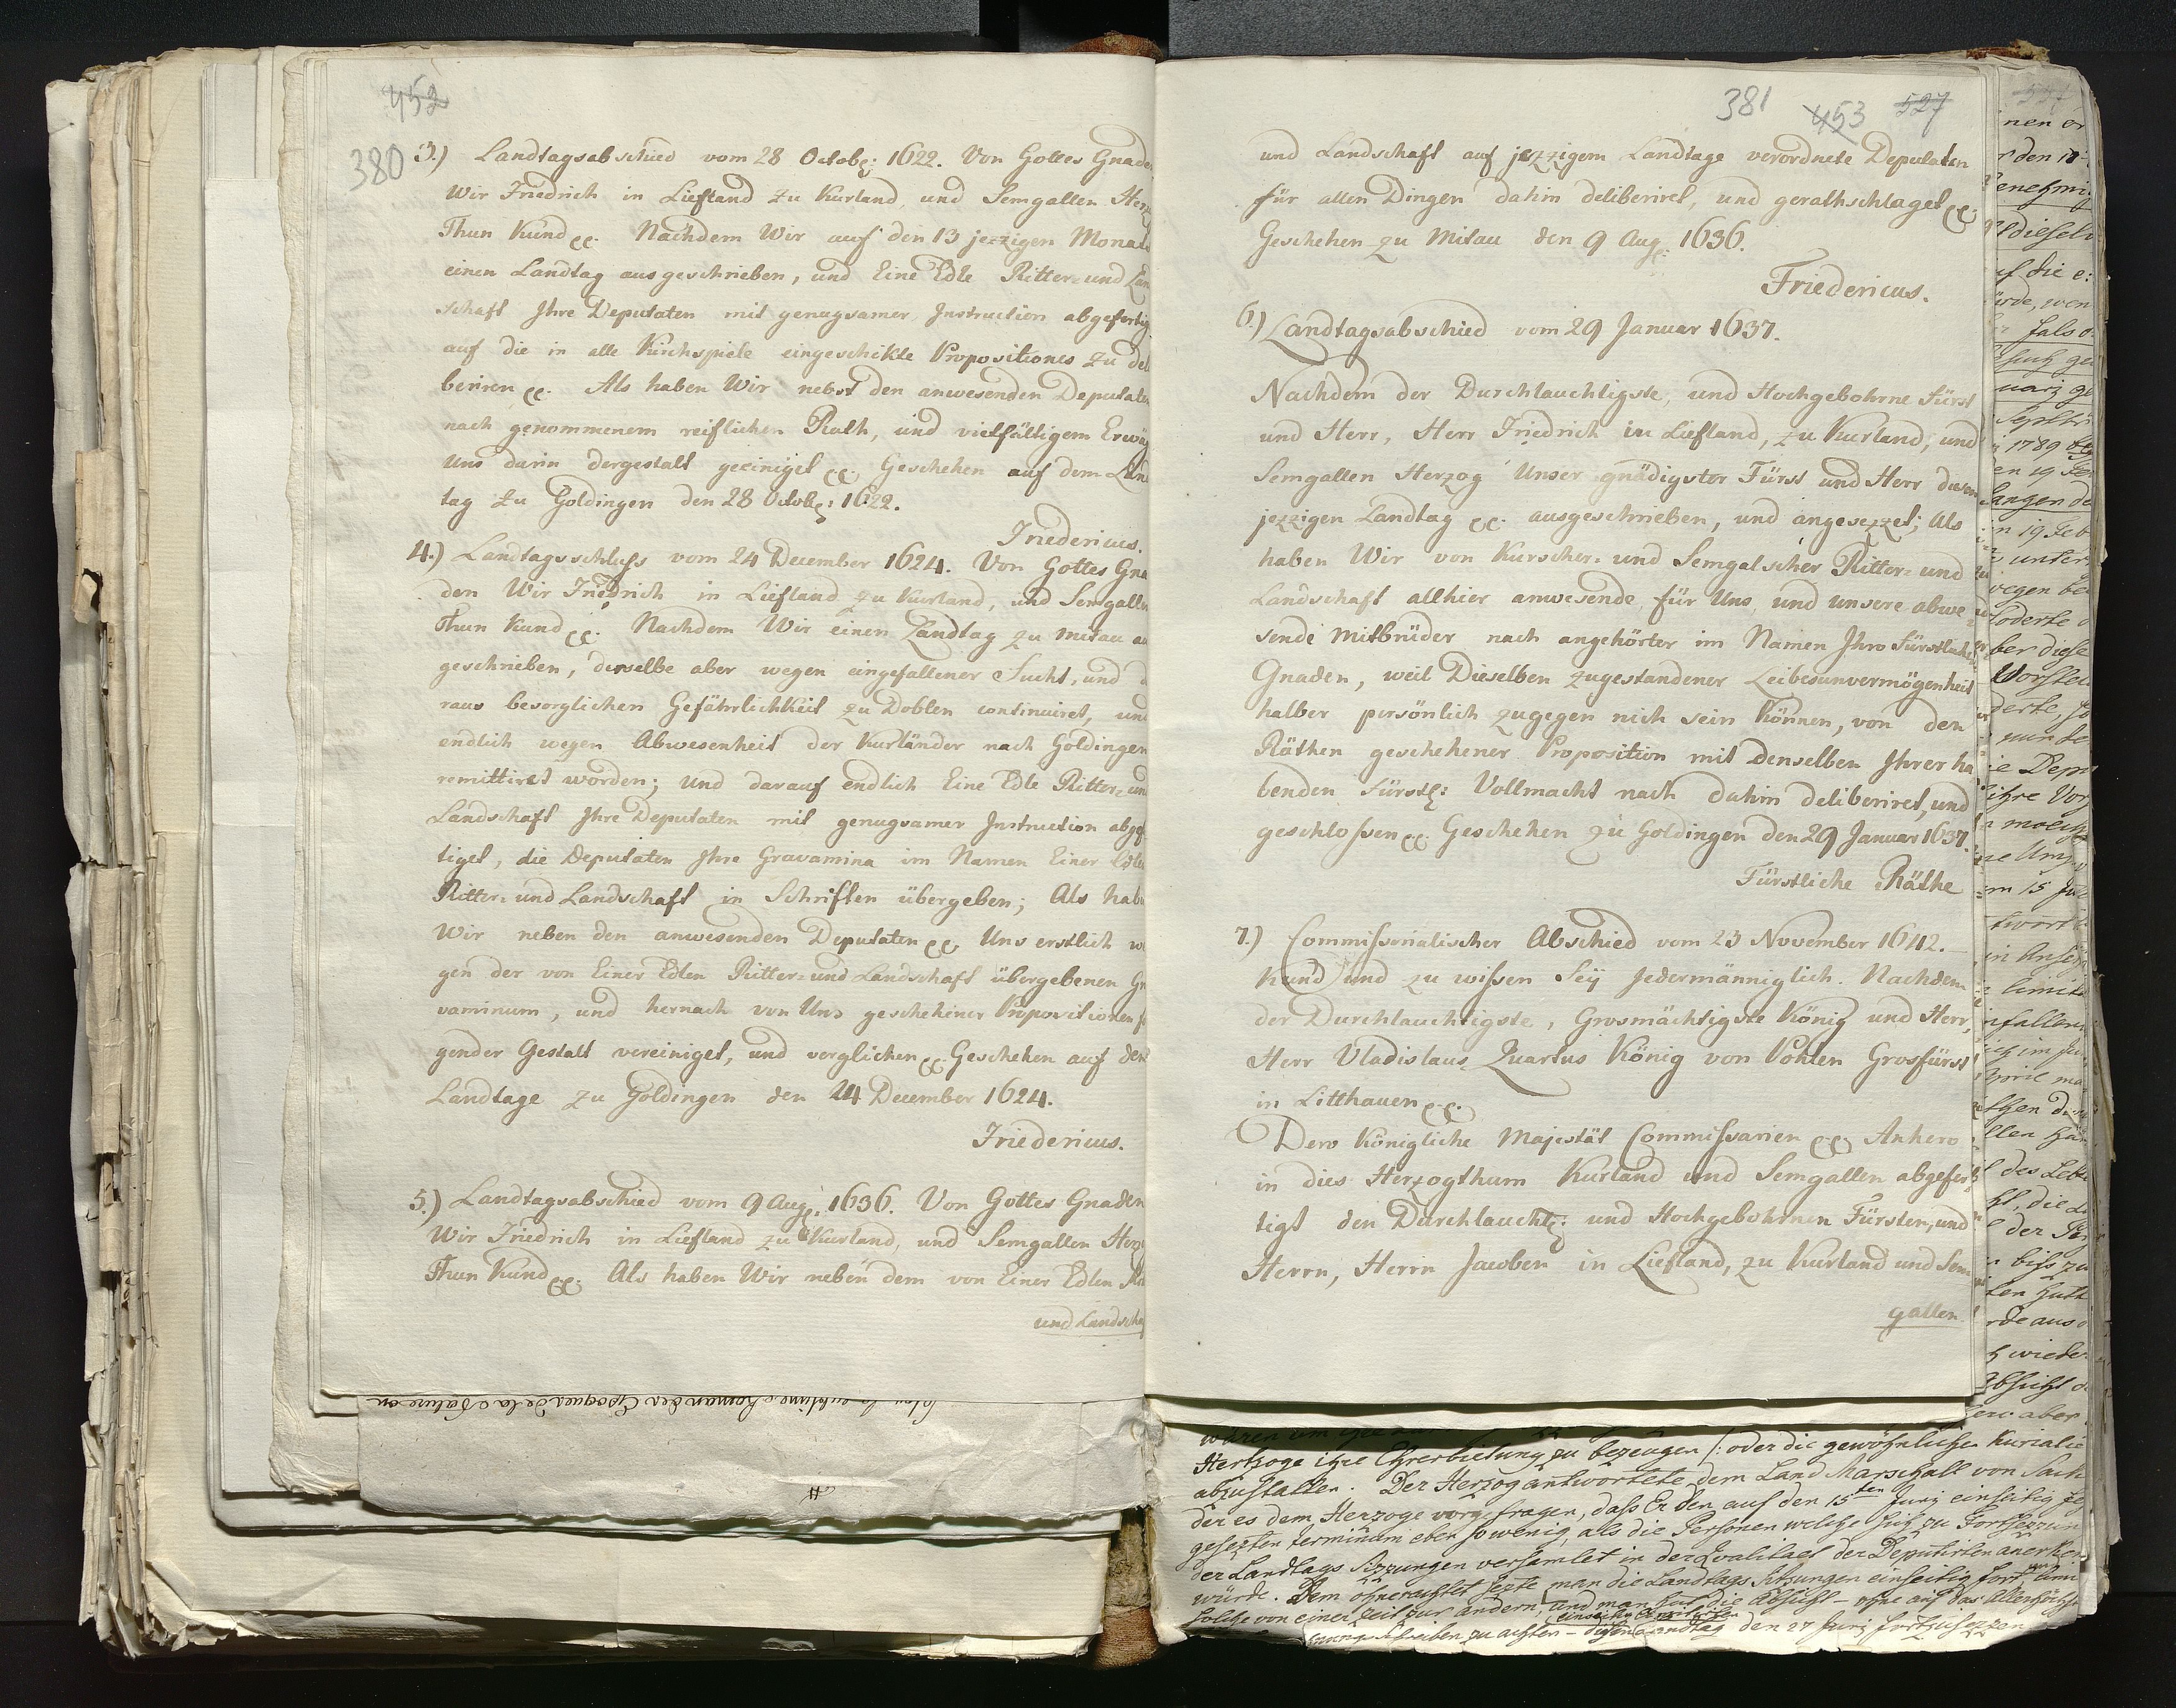 452
380
3.) Landtagsabschied vom 28 Octobr: 1622. Von Gottes Gnade
Wir Friedrich in Liefland zu Kurland, und Semgallen Herz
Thun Kund etc. Nachdem Wir auf den 13 jezzigen Monats
einen Landtag ausgeschrieben, und Eine Edle Ritter- und Lan
schaft Ihre Deputaten mit genugsamer Instruction abgefertig
auf die in alle Kirchspiele eingeschikte Propositiones zu deli
beriren etc. Als haben Wir nebst den anwesenden Deputaten
nach genommenem reiflichen Rath, und vielfältigem Erwäg
Uns darin dergestalt geeiniget etc. Geschehen auf dem Land
tag zu Goldingen den 28 Octobr: 1622.
Friedericus.
4.) Landtagsschluss vom 24 December 1624. Von Gottes Gna
den Wir Friedrich in Liefland zu Kurland, und Semgallen
Thun Kund etc. Nachdem Wir einen Landtag zu Mitau au
geschrieben, derselbe aber wegen eingefallener Sucht, und d
raus besorglichen Gefährlichkeit zu Doblen continuiret, und
endlich wegen Abwesenheit der Kurländer nach Goldingen
remittiret worden; und darauf endlich Eine Edle Ritter- und
Landschaft Ihre Deputaten mit genugsamer Instruction abgef
tiget, die Deputaten Ihre Gravamina im Namen Einer Edle
Ritter- und Landschaft in Schriften übergeben; Als habe
Wir neben den anwesenden Deputaten etc. Uns erstlich we
gen der von Einer Edlen Ritter- und Landschaft übergebenen Gra
vaminum, und hernach von Uns geschehener Propositionen fo
gender Gestalt vereiniget, und verglichen etc. Geschehen auf dem
Landtage zu Goldingen den 24 December 1624.
Friedericus.
5.) Landtagsabschied vom 9 Aug: 1636. Von Gottes Gnaden
Wir Friedrich in Liefland zu Kurland, und Semgallen Herz
Thun Kund etc. Als haben Wir neben dem von Einer Edlen
und Landscha
381 453 527
und Landschaft auf jezzigem Landtage verordnete Deputaten
für allen Dingen dahin deliberiret, und gerathschlaget etc.
Geschehen zu Mitau den 9 Aug: 1636.
Friedericus.
6.) Landtagsabschied vom 29 Januar 1637.
Nachdem der Durchlauchtigste, und Hochgebohrne Fürst
und Herr, Herr Friedrich in Liefland, zu Kurland, und
Semgallen Herzog Unser gnädigster Fürst und Herr diesen
jezzigen Landtag etc. ausgeschrieben, und angesezzet; Als
haben Wir von Kurscher- und Semgalscher Ritter- und
Landschaft allhier anwesende, für Uns, und unsere abwe
sende Mitbrüder nach angehörter im Namen Ihro Fürstlichen
Gnaden, weil Dieselben zugestandener Leibesunvermögenheit
halber persönlich zugegen nich sein können, von den
Räthen geschehener Proposition mit Denselben Ihrer ha
benden Fürstl: Vollmacht nach dahin deliberiret, und
geschlossen etc. Geschehen zu Goldingen den 29 Januar 1637.
Fürstliche Räthe
7.) Commissorialischer Abschied vom 23 November 1642.
Kund und zu wissen Seÿ Jedermänniglich. Nachdem
der Durchlauchtigste, Grosmächtigste König und Herr,
Herr Vladislaus Quartus König von Pohlen Grosfürst
in Litthauen etc.
Dero Königliche Majestät Commissarien etc. Anhero
in dies Herzogthum Kurland und Semgallen abgefer
tigt den Durchlauchtl: und Hochgebohrnen Fürsten, und
Herrn, Herrn Jacoben in Liefland, zu Kurland und Sem
gallen.
Hertzoge ihre Ehrerbietung zu bezeugen /: oder die gewöhnliche Kurialie
abzustatten. Der Herzog antwortete dem Land Marschall von Sack
der es dem Herzoge vorgetragen, dass Er den auf den 15ten Junj einseitig fe
gesezten terminum eben so wenig, als die Personen welche sich zu Fortsezzun
der Landtags Sizzungen versamlet in der Qvalitaet der Deputirten anerken
würde. Dem ohnerachtet sezte man die Landtags Sitzungen einseitig fort
solche von einer Zeit zur andern, und man hat die Absicht - ohne auf das Allerhöchst
Schreiben zu achten - diesen Landtag den 27 Junj fortzusezzen